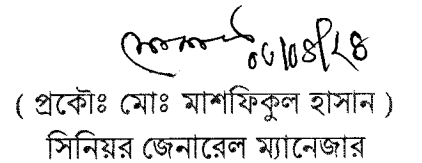 ( প্রকৌঃ মোঃ মাশফিকুল হাসান )
সিনিয়র জেনারেল ম্যানেজার